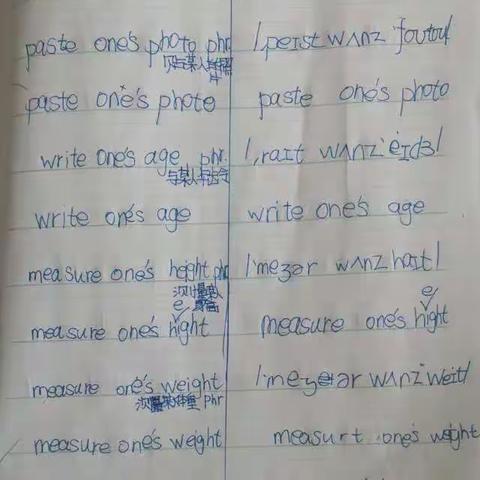 paste one's photo phr /peist wʌnz 'foutou/
贴某人的照片
paste one's photo paste one's photo
write one's age phr. /,rait wʌnz 'eidʒ/
写某人年龄
write one's age write one's age
measure one's height phr /'meʒər wʌnz hait/
测量某人身高
e e
measure one's hight measure one's hight
measure one's weight /'meʒər wʌnz weit/
测量某人体重 phr
measure one's weight measurt one's weight